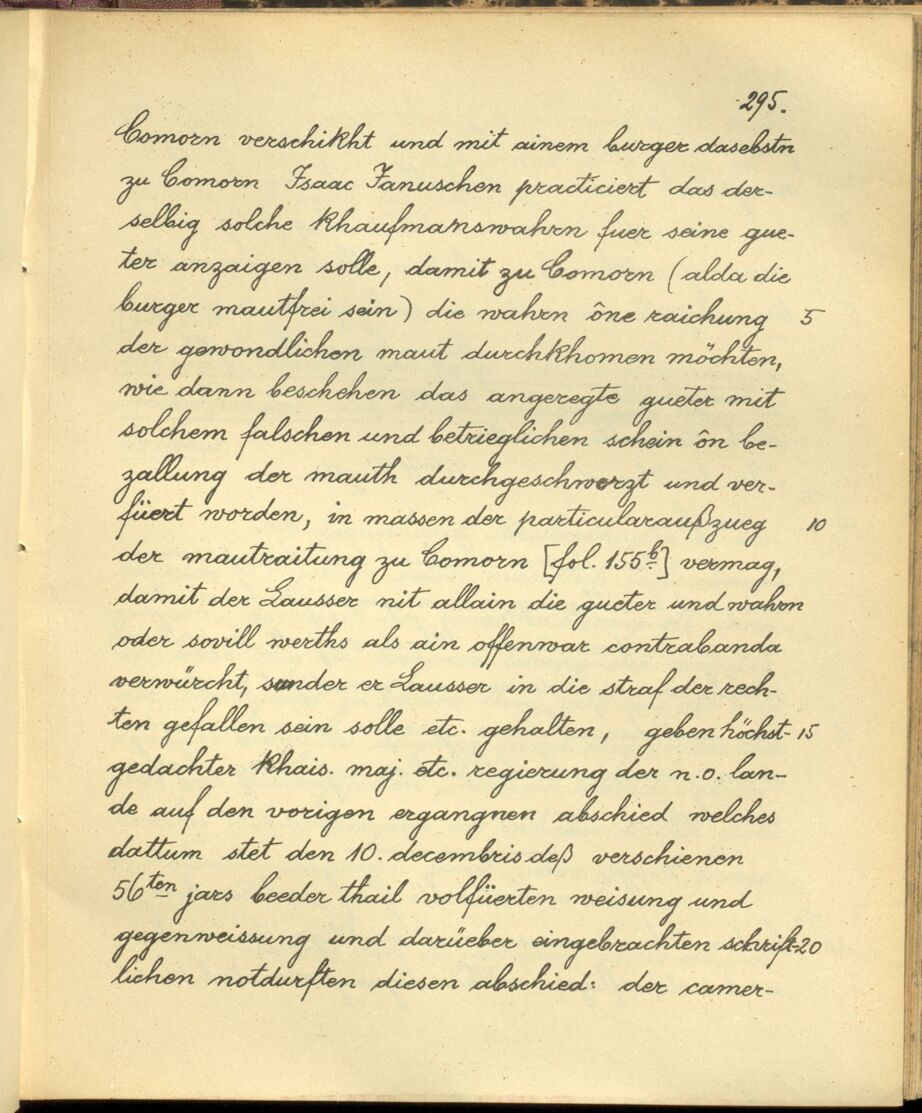 295.
Comorn verschikht und mit ainem burger dasebstn
zu Comorn Isaac Januschen practiciert das der-
selbig solche khaufmanswahrn fuer seine gue-
ter anzaigen solle, damit zu Comorn (alda die
burger mautfrei sein) die wahrn ône raichung 5
der gewondlichen maut durchkhomen möchten,
wie dann beschehen das angeregte gueter mit
solchem falschen und betrieglichen schein ôn be-
zallung der mauth durchgeschworzt und ver-
füert worden, in massen der particularaußzueg 10
der mautraitung zu Comorn [fol. 155b.] vermag,
damit der Lausser nit allain die gueter und wahrn
oder sovill werths als ain offenwar contrabanda
verwürcht, sunder er Lausser in die straf der rech-
ten gefallen sein solle etc. gehalten, geben höchst- 15
gedachter khais. maj. etc. regierung der n.o. lan-
de auf den vorigen ergangnen abschied welches
dattum stet den 10. decembris deß verschienen
56ten jars beeder thail volfüerten weisung und
gegenweissung und darüeber eingebrachten schrift- 20
lichen notdurften diesen abschied: der camer-